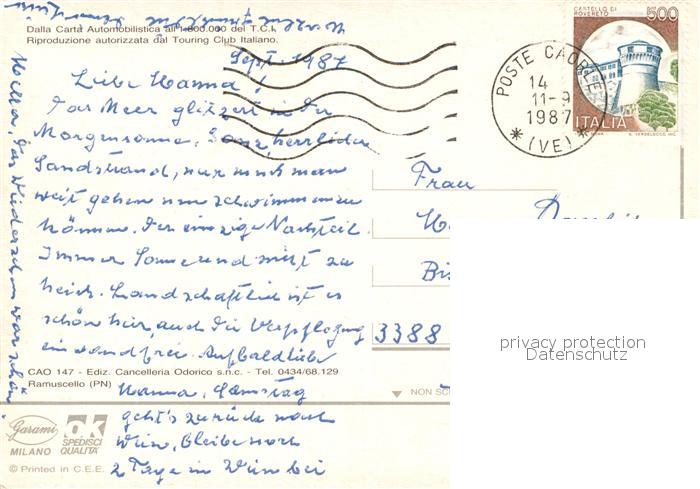 Dalla Carta Automobilistica all'1:800.000 del T.C.I.
Riproduzione autorizzata dal Touring Club Italiano.
Sept. 1987
Liebe Hanna!
Das Meer glitzert in der
Morgensonne. Ganz herrlicher
Sandstrand, nur muß man
weit gehen um schwimmen zu
können. Der einzige Nachteil.
Immer Sonne und nicht zu
heiß. Landschaftlich ist es
schön hier, auch die Verpflegung
einwandfrei. Auf bald liebe
CAO 147 - Ediz. Cancelleria Odorico s.n.c. - Tel. 0434/68.129
Ramuscello (PN)
Hanna, Samstag
geht's zurück nach
Wien, bleibe noch
2 Tage in Wien bei
Hella, das Wiedersehen war schön.
Garami
MILANO
ok
SPEDISCI
QUALITÀ
© Printed in C.E.E.
CASTELLO DI
ROVERETO
500
ITALIA
POSTE CAORLE
14
11-9
1987
(VE)
Frau
Bis
3388
NON SC
privacy protection
Datenschutz